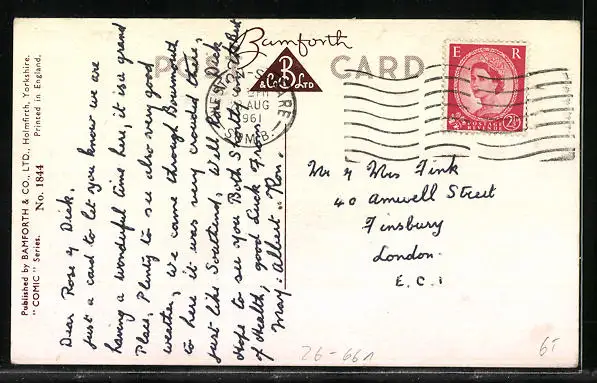 Published by BAMFORTH & CO., LTD., Holmfirth, Yorkshire.
"COMIC" Series.
No. 1844
Printed in England.
Bamforth
POST CARD
B
& Co LTD
AUG
1961
SOMB.
E R
POSTAGE
REVENUE
2½
Dear Rose & Dick.
Just a card to let you know we are
having a wonderful time here, it is a grand
Place, Plenty to see also very good
weather, We came through Bournmouth
to here it was very crowded there,
just like Southend, Well Rose & Dick
Hope to see you Both Shortly. In the Best
of Health, good luck From
May. Albert "Ron.
Mr & Mrs Fink
40 Amwell Street
Finsbury
London.
E.C.1
26-66n
6/-